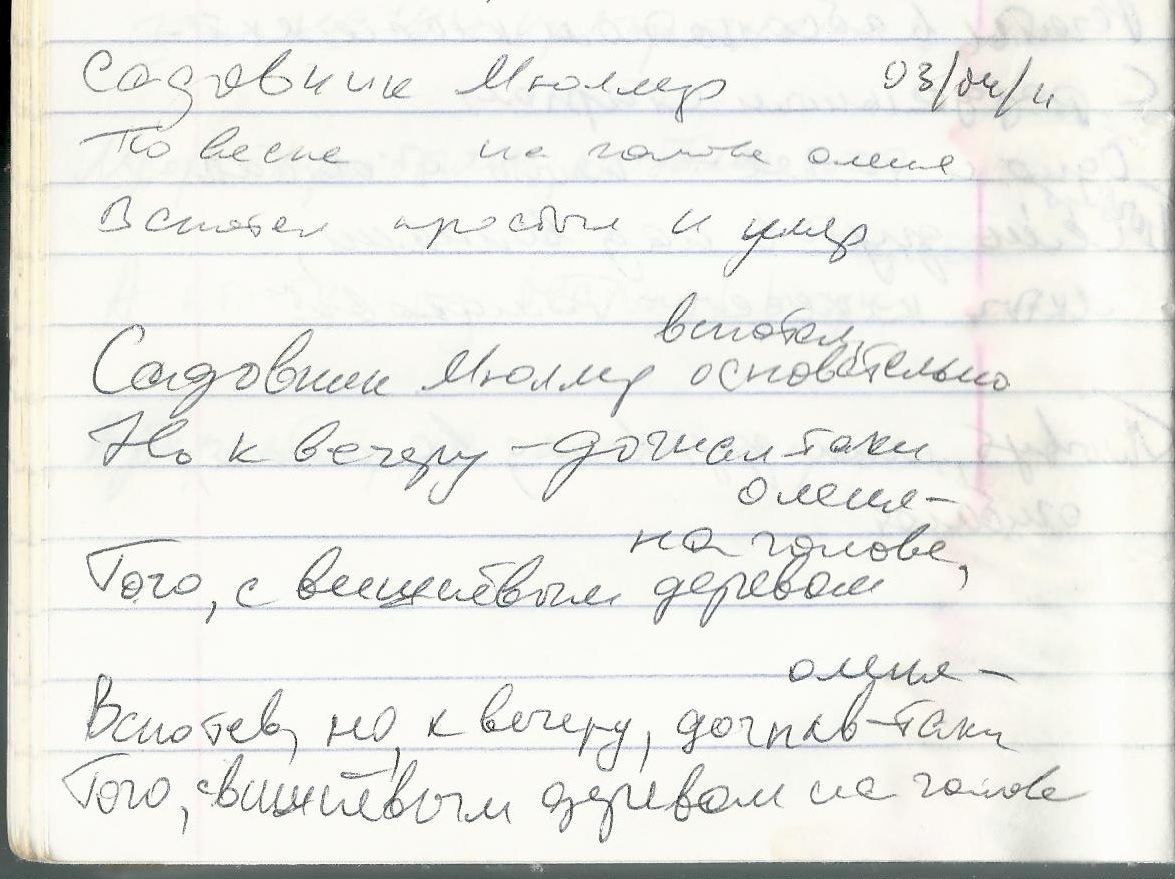 Садовник Мюллер 03/04/11
По весне на голове оленя
Вспотел простыл и умер
вспотел,
Садовник Мюллер основательно
Но к вечеру – догнал-таки
оленя –
на голове,
Того, с вишнёвым деревом
оленя –
Вспотев, но, к вечеру, догнав-таки
Того, с вишнёвым деревом на голове